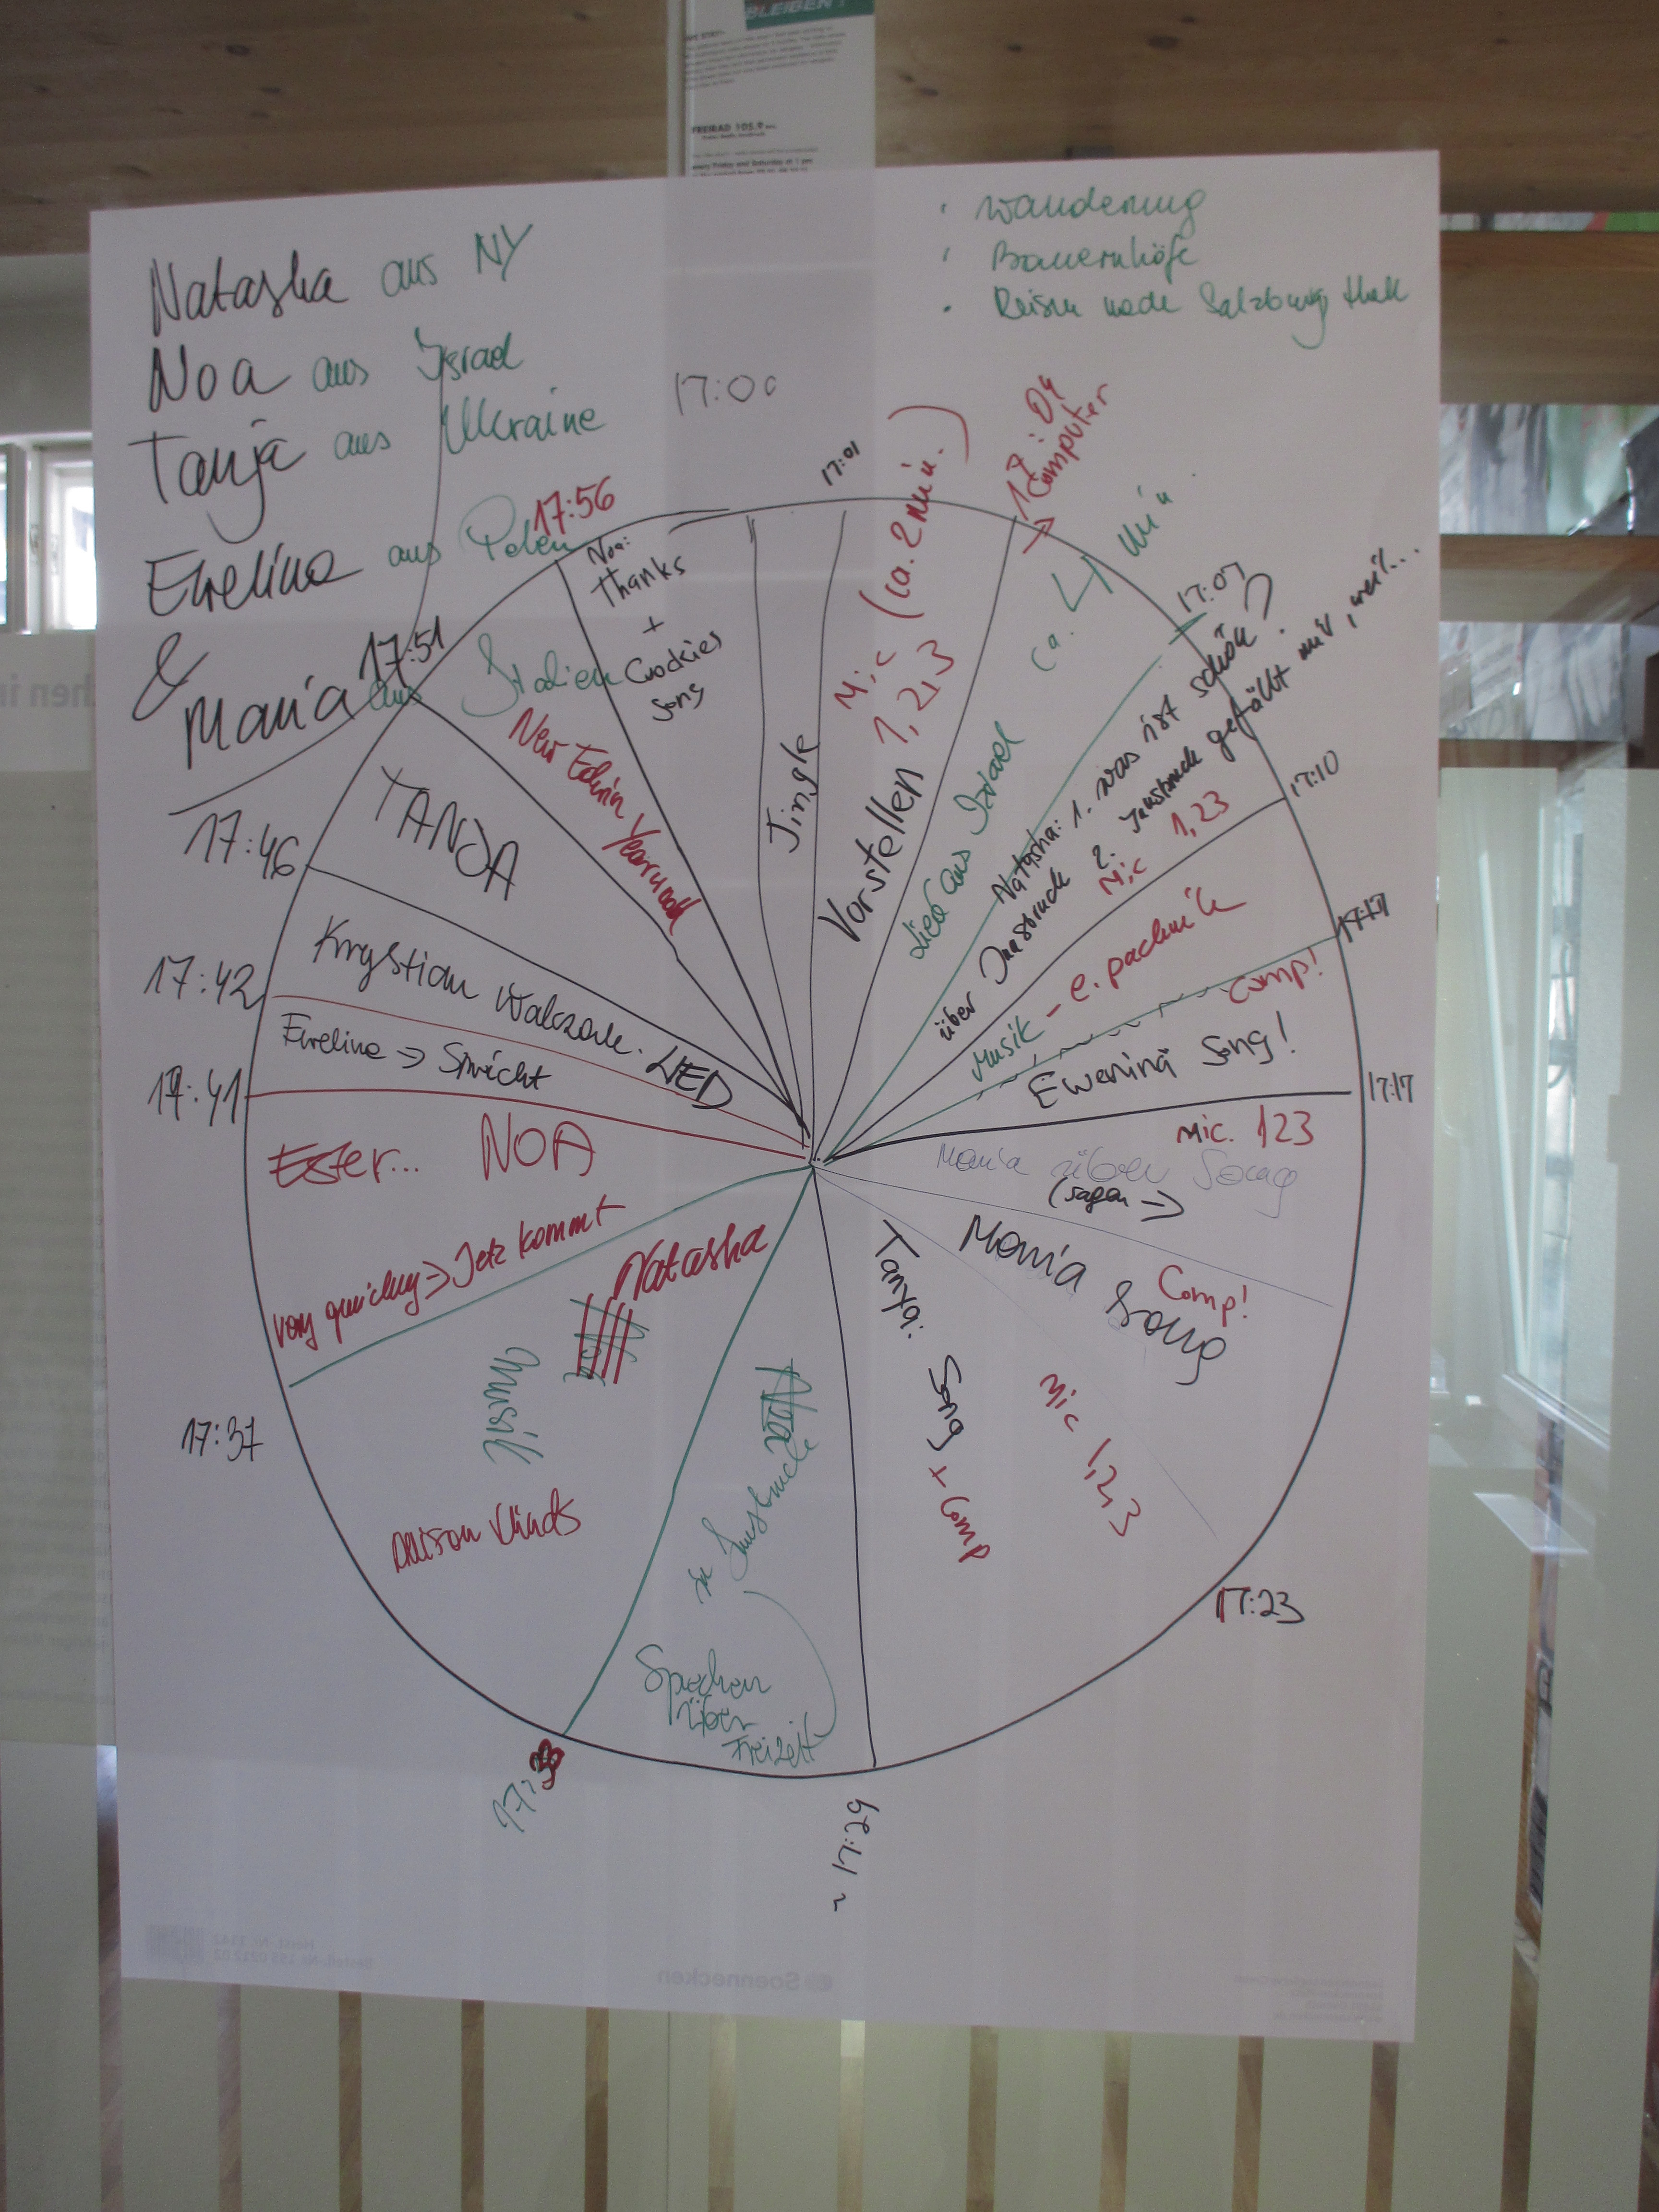 BLEIBEN!
FREIRAD 105.9
every Friday and Saturday at 1 pm
Natasha aus NY
Noa aus Israel
Tanja aus Ukraine
Ewelina aus Polen
&
Maria aus Italien
· Wanderung
· Bauernhöfe
· Reisen nach Salzburg, Hall
17:00
17:01
Jingle
Mic (ca. 2 min.)
Vorstellen 1,2,3
17:04
Computer
Lied aus Israel ca. 4 min.
17:07
Natasha: 1. was ist schön?
über Innsbruck 2. Innsbruck gefällt mir, weil...
Mic 1,23
17:10
Musik - e. pachnik
17:17
Comp!
Ewenina Song!
17:17
Mic. 123
Maria über Song
(sagen →)
Maria Song
Comp!
Mic 1,2,3
17:23
Tanya: Song + Comp
~ 17:29
Noa
in Innsbruck
Sprechen
über
Freizeit
17:33
Natasha
Noa
Musik
17:37
very quickly => Jetz kommt
Ester... NOA
17:41
Ewelina => Spricht
17:42
Krystian Walczak. LIED
17:46
TANJA
17:51
New
17:56
Noa:
Thanks
+
Coockies
song
Soennecken